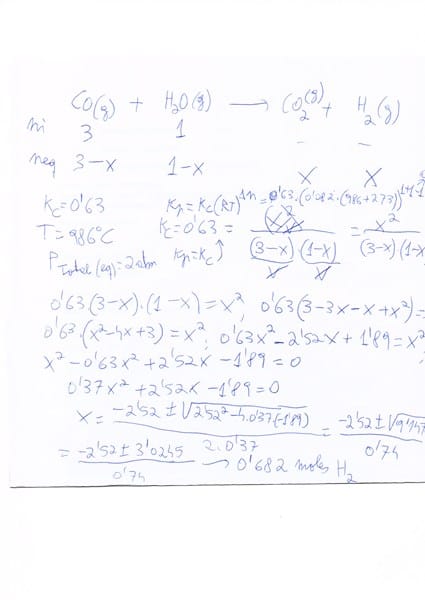 CO(g) + H2O(g) → CO2(g) + H2(g)
ni 3 1 - -
neq 3-x 1-x x x
Kc=0'63 Kp = Kc(RT)^Δn = 0'63·(0'082·(986+273))^1+1-1
T=986ºC Kc=0'63 = = x²
Kp=Kc (3-x)·(1-x) (3-x)(1-x
P total (eq)=2atm V V
0'63·(3-x)·(1-x)=x², 0'63(3-3x-x+x²)=
0'63·(x²-4x+3)=x²; 0'63x²-2'52x+1'89=x²
x²-0'63x²+2'52x-1'89=0
0'37x²+2'52x-1'89=0
x= -2'52 ± √2'52²-4·0'37(-1'89) = -2'52±√9'147
2·0'37 0'74
= -2'52 ± 3'0245 → 0'682 moles H2
0'74